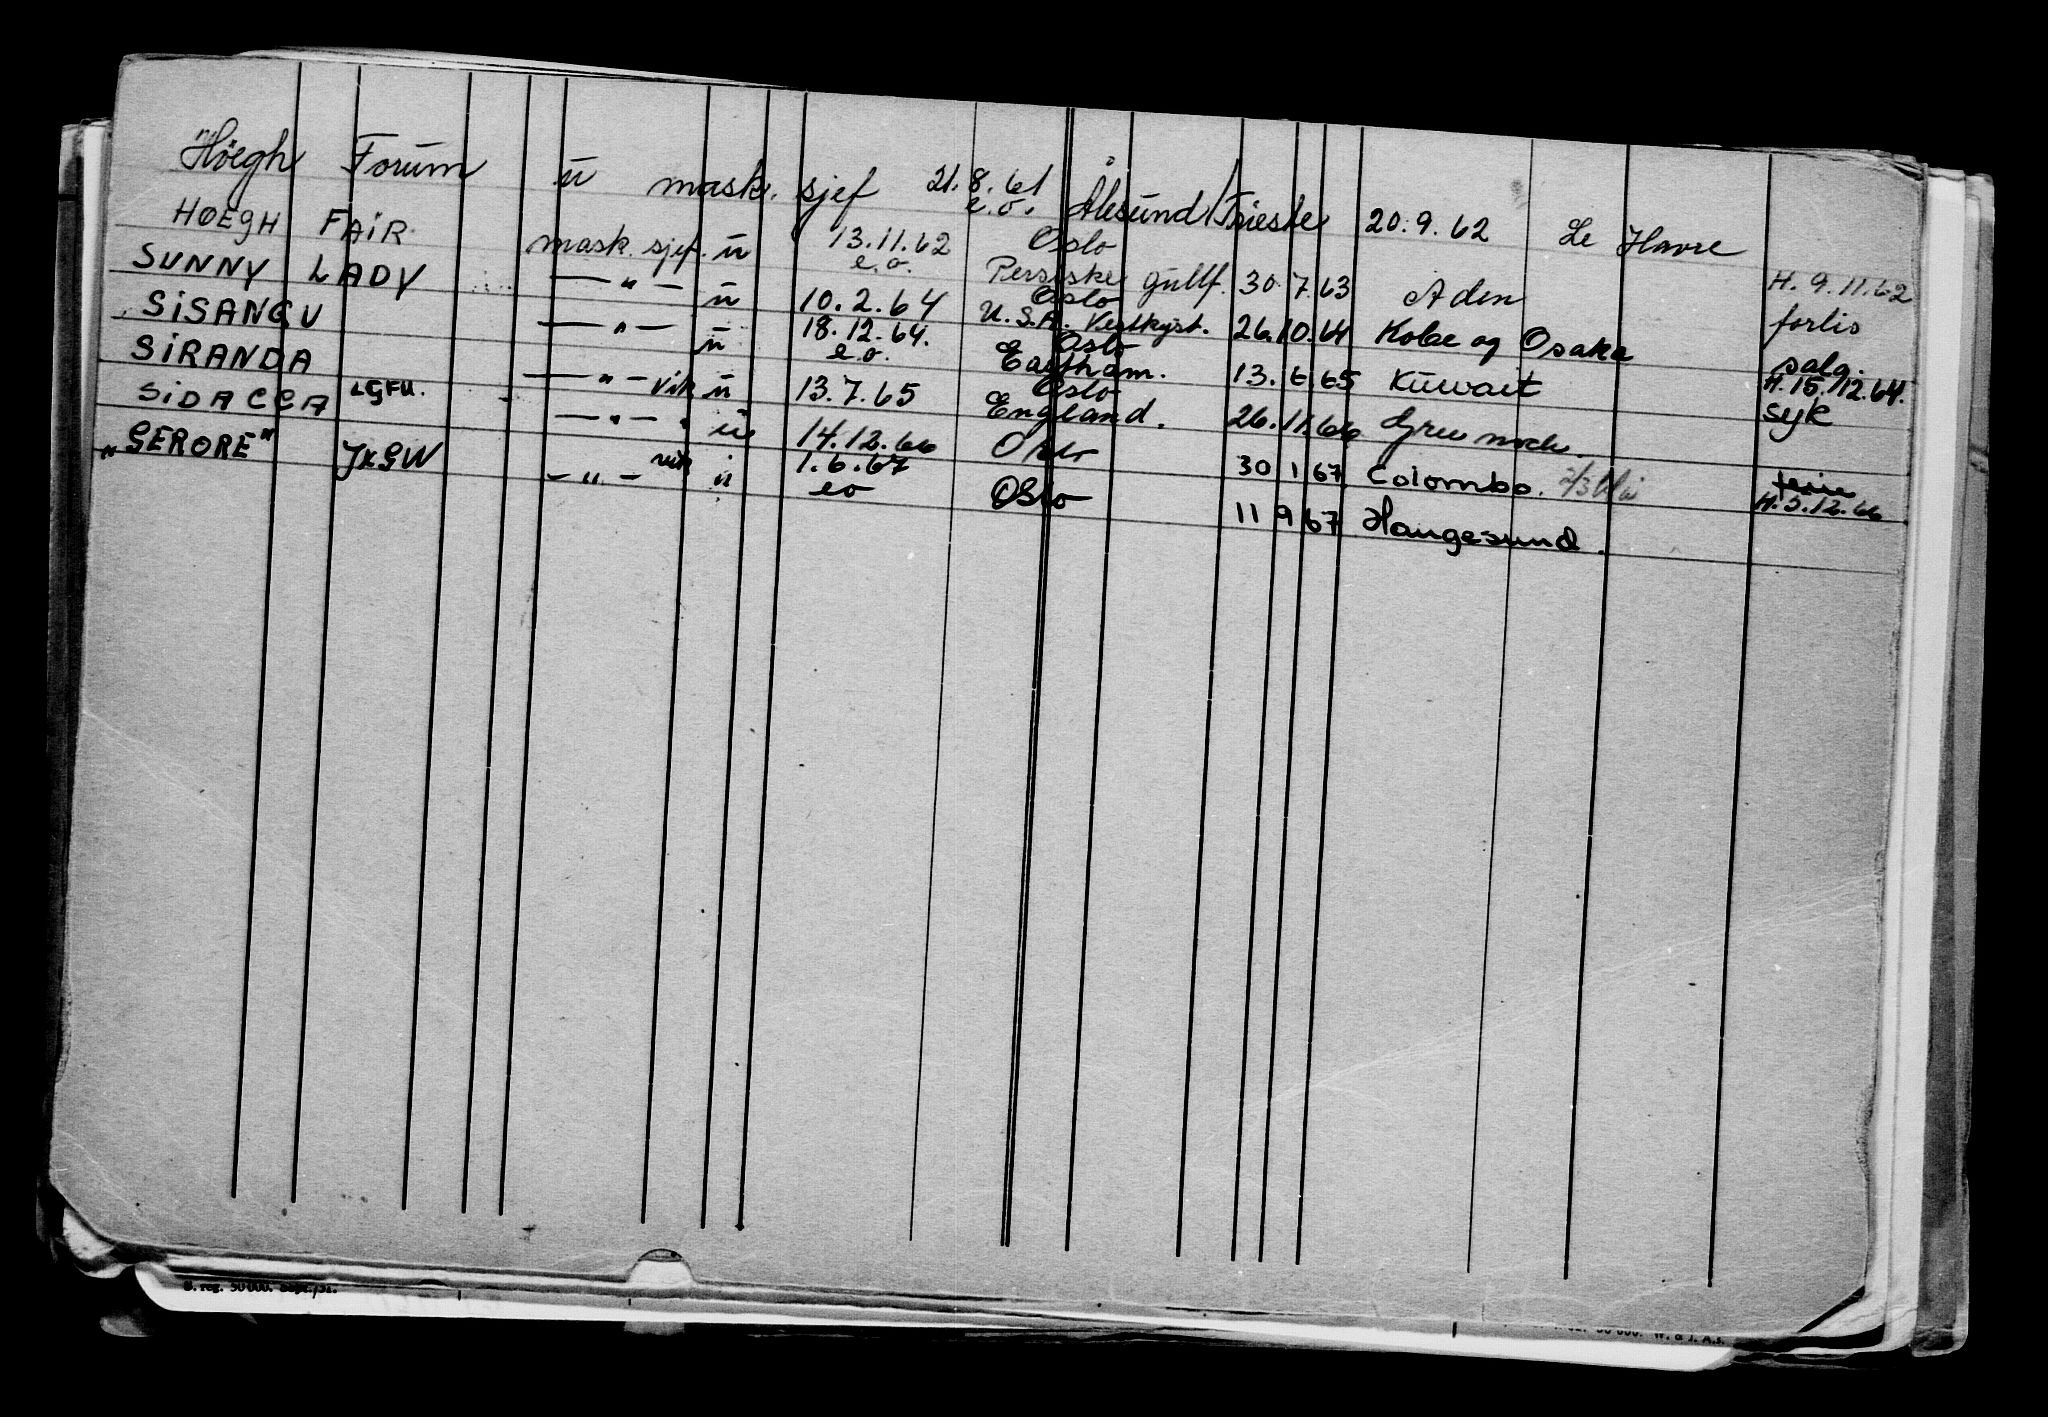 Høegh Forum ū mask. sjef 21.8.61 e.o. Ålesund/Trieste 20.9.62 Le Havre
HØEGH FAIR mask. sjef. ū 13.11.62 e.o. Oslo Persiske gulf. 30.7.63 Aden H. 9.11.62
SUNNY LADY — " — ū 10.2.64 Oslo U.S.A. Vestkyst. 26.10.64 Kobe og Osaka forlis
SISANGU — " — ū 18.12.64. e.o. Oslo Eastham. 13.6.65 Kuwait salg. H. 15.12.64.
SIRANDA — " — vik ū 13.7.65 Oslo England. 26.11.66 Greenock. syk
SIDACCA LGFU. — " — ū 14.12.66 Oslo 30 1 67 Colombo. H. 3.12.66
"GERORE" JXGW — " — vik ū 1.6.67 eo Oslo 11 9 67 Haugesund.
50 000. W. & J. A.s.